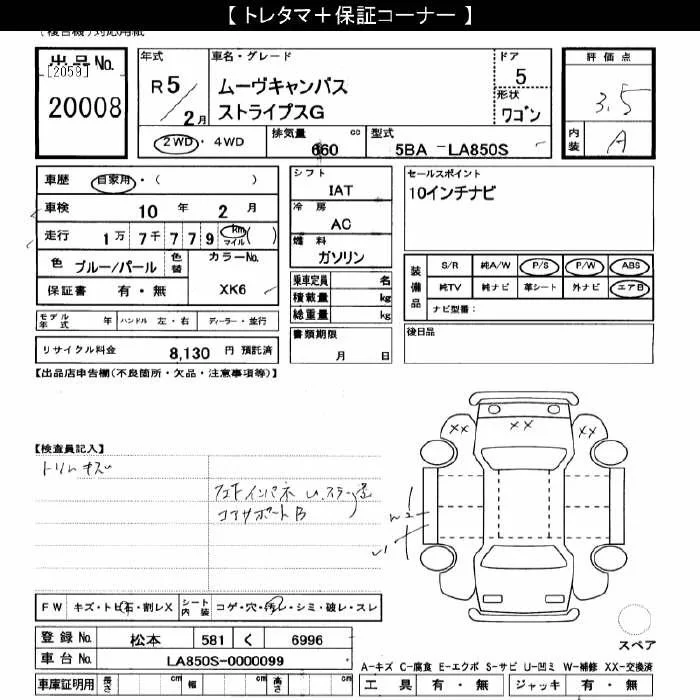 【 トレタマ＋保証コーナー 】
出品No.
[2059]
20008
年式
R5／2月
車名・グレード
ムーヴキャンバス
ストライプスG
ドア
5
形状
ワゴン
評価点
3.5
内装
A
2WD・4WD
排気量 cc
660
型式
5BA －LA850S
車歴 自家用・( )
車検 10 年 2 月
走行 1万 7千 7 7 9 km マイル ( )
色 ブルー/パール
色替
カラーNo.
XK6
保証書 有・無
モデル年式 年 ハンドル 左・右 ディーラー・並行
リサイクル料金 8,130 円 預託済
シフト
IAT
冷房
AC
燃料
ガソリン
乗車定員 名
積載量 kg
総重量 kg
書類期限
月 日
セールスポイント
10インチナビ
装備品
S/R 純A/W P/S P/W ABS
純TV 純ナビ 革シート 外ナビ エアB
ナビ型番:
後日品
【出品店申告欄(不良箇所・欠品・注意事項等)】
【検査員記入】
トリムキズ
コアサポートB
XX XX XX
W2
U1
FW キズ・トビ石・割レX
シート内装 コゲ・穴・汚レ・シミ・破レ・スレ
登録No. 松本 581 く 6996
車台No. LA850S-0000099
車庫証明用 長さ cm 幅 cm 高さ cm
スペア
A-キズ C-腐食 E-エクボ S-サビ U-凹ミ W-補修 XX-交換済
工具 有・無 ジャッキ 有・無